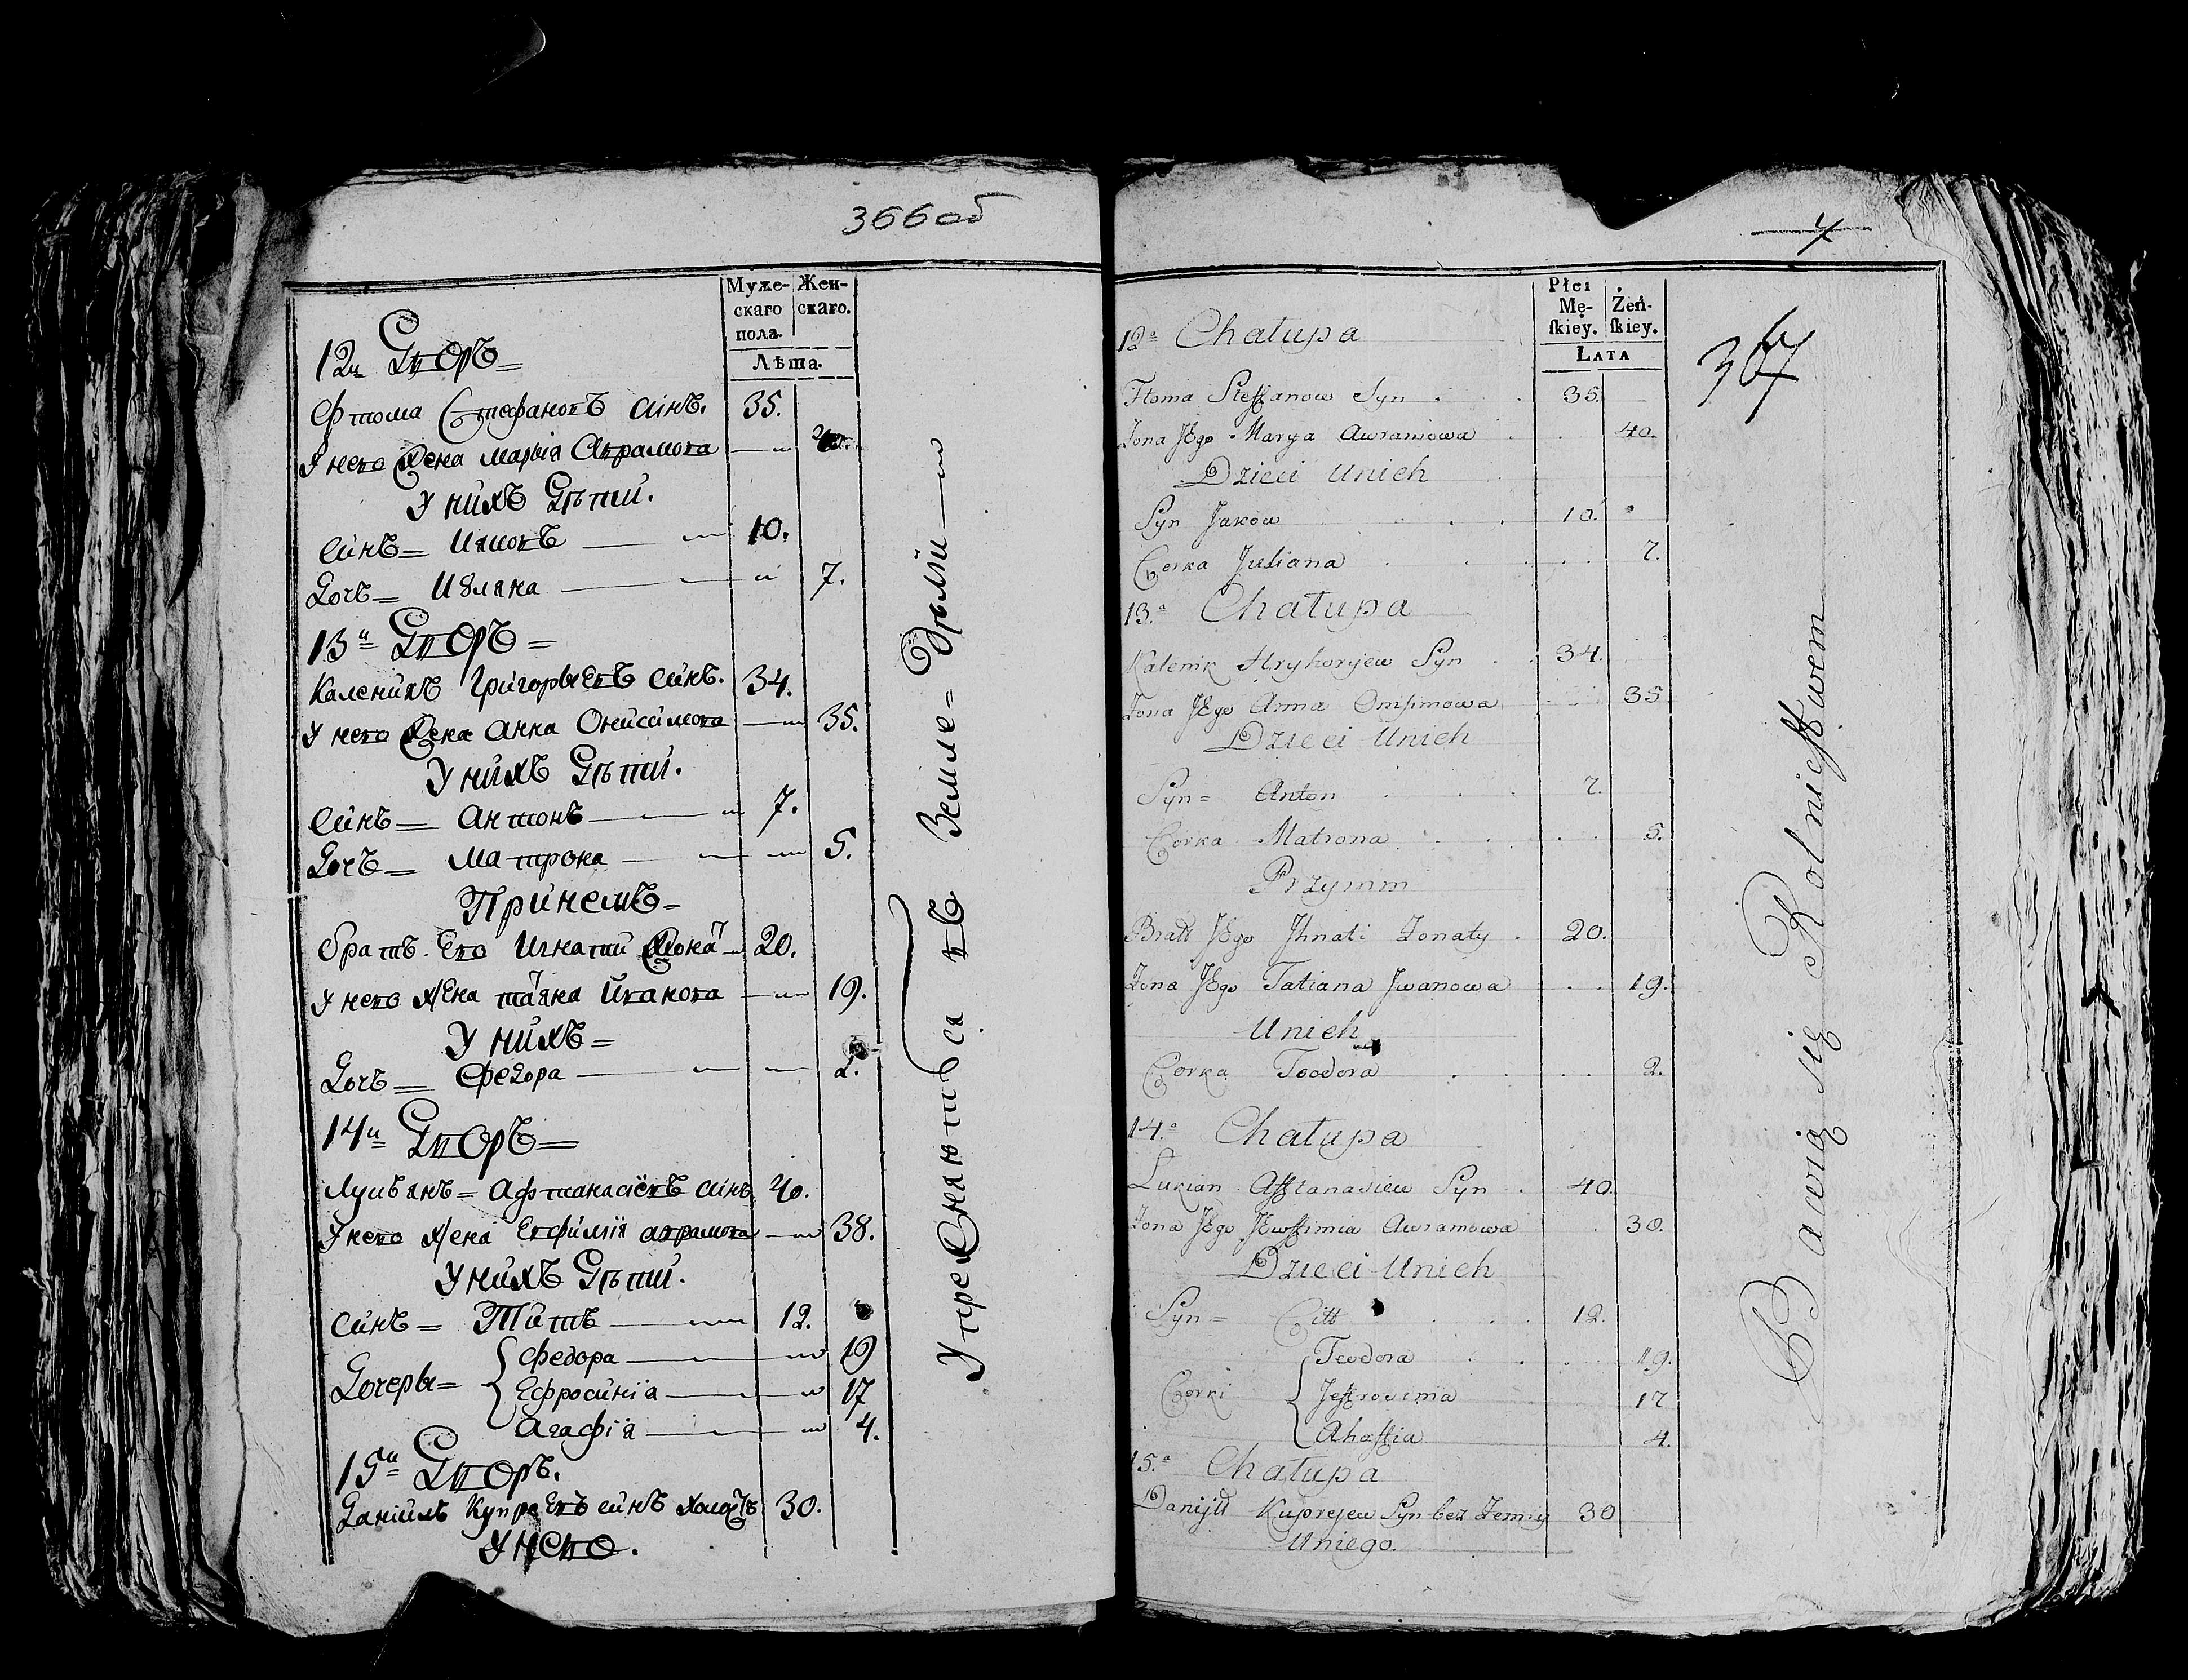 366об
Муже-
скаго
пола.
Жен-
скаго.
Лѣта.
12й Дворъ
Фтома Стефановъ синъ. 35.
У него жена Марыя Аврамова 40.
У нихъ Дѣти.
Синъ Ияковъ 10.
Дочъ Иѹляна 7.
13й Дворъ
Каленикъ Григорыевъ синъ. 34.
У него жена Анна Онисимова 35.
У нихъ Дѣти.
Синъ Антонъ 7.
Дочъ Матрона 5.
При немъ
братъ Его Игнатий жонатй 20.
У него жена татяна Йванова 19.
У нихъ
Дочъ Федора 2.
14й Дворъ
Лукъянъ Афтанасiевъ синъ 40.
У него жена Евфимiя аврамова 38.
У нихъ Дѣти.
Синъ Титъ 12.
Дочеры
Федора 19
Ефросинiя 17
Агафiя 4.
15й Дворъ.
Данiилъ Купреевъ синъ холостъ 30.
У него.
Упражнаютъся въ Земле-Дѣлiи
4
367
Płci
Mę-
ſkiey.
Żeń-
ſkiey.
LATA
12a Chałupa
Ftoma Steffanow Syn 35.
Żona JEgo Marya Awramowa 40.
Dzieci Unich
Syn Jakow 10.
Corka Juliana 7.
13.a Chałupa
Kalenik Hryhoryjew Syn 34.
Żona JEgo Anna Onisimowa 35
Dzieci Unich
Syn= Anton 7.
Corka Matrona 5.
Przynim
Bratt JEgo Jhnati Żonaty 20.
Żona JEgo Tatiana Jwanowa 19.
Unich
Corka Teodora 2.
14.a Chałupa
Łukian Afftanasiew Syn 40.
Żona JEgo JEwffimia Awramowa 30.
Dzieci Unich
Syn= Titt 12.
Corki
Teodora 19.
Jeffrosinia 17
Ahaffia 4.
15.a Chałupa
Danijłł Kuprejew Syn bez Żenny 30
Uniego.
Bawią się Rolnictwem